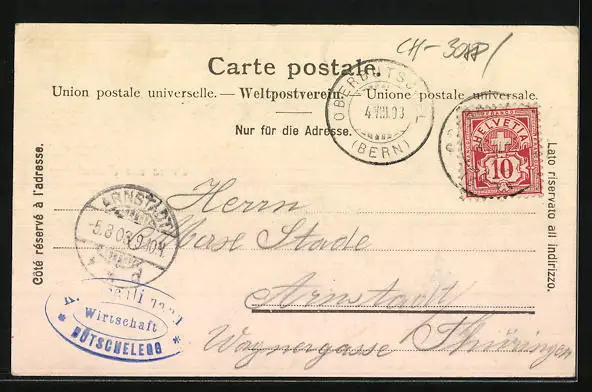 CH-3088/
Carte postale.
Union postale universelle. — Weltpostverein. — Unione postale universale.
Nur für die Adresse.
Côté réservé à l'adresse.
Lato riservato all indirizzo.
4.VIII.03
(BERN)
FRANCO
HELVETIA
10
Herrn
Stade
Arnstadt
Wagnergasse Thüringen
ARNSTADT
5.8.03
Wirtschaft
* RÜTSCHELEGG *